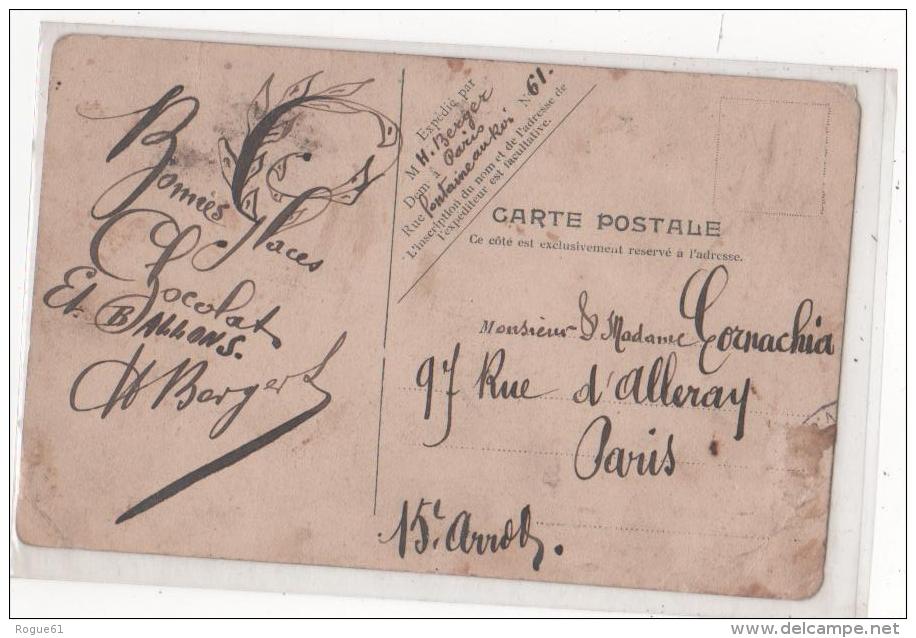 Bonnes
Glaces
Chocolat
Et BALLONS.
H Bergert
Expédié par
M H. Berger
Dem. à Paris
Rue fontaine au Roi N° 61.
L'inscription du nom et de l'adresse de
l'expéditeur est facultative.
CARTE POSTALE
Ce côté est exclusivement reservé à l'adresse.
Monsieur & Madame Cornachia
97 Rue d'Alleray
Paris
15e Arrot.
Rogue61
www.delcampe.net